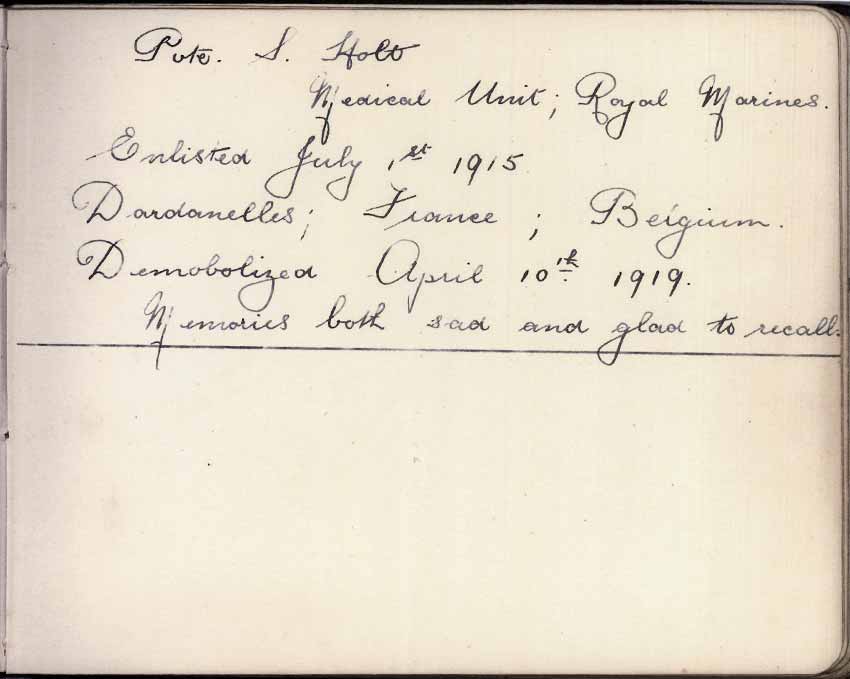 Pvte. S. Holt
Medical Unit; Royal Marines.
Enlisted July 1st 1915
Dardanelles; France; Belgium.
Demobolized April 10th 1919.
Memories both sad and glad to recall.